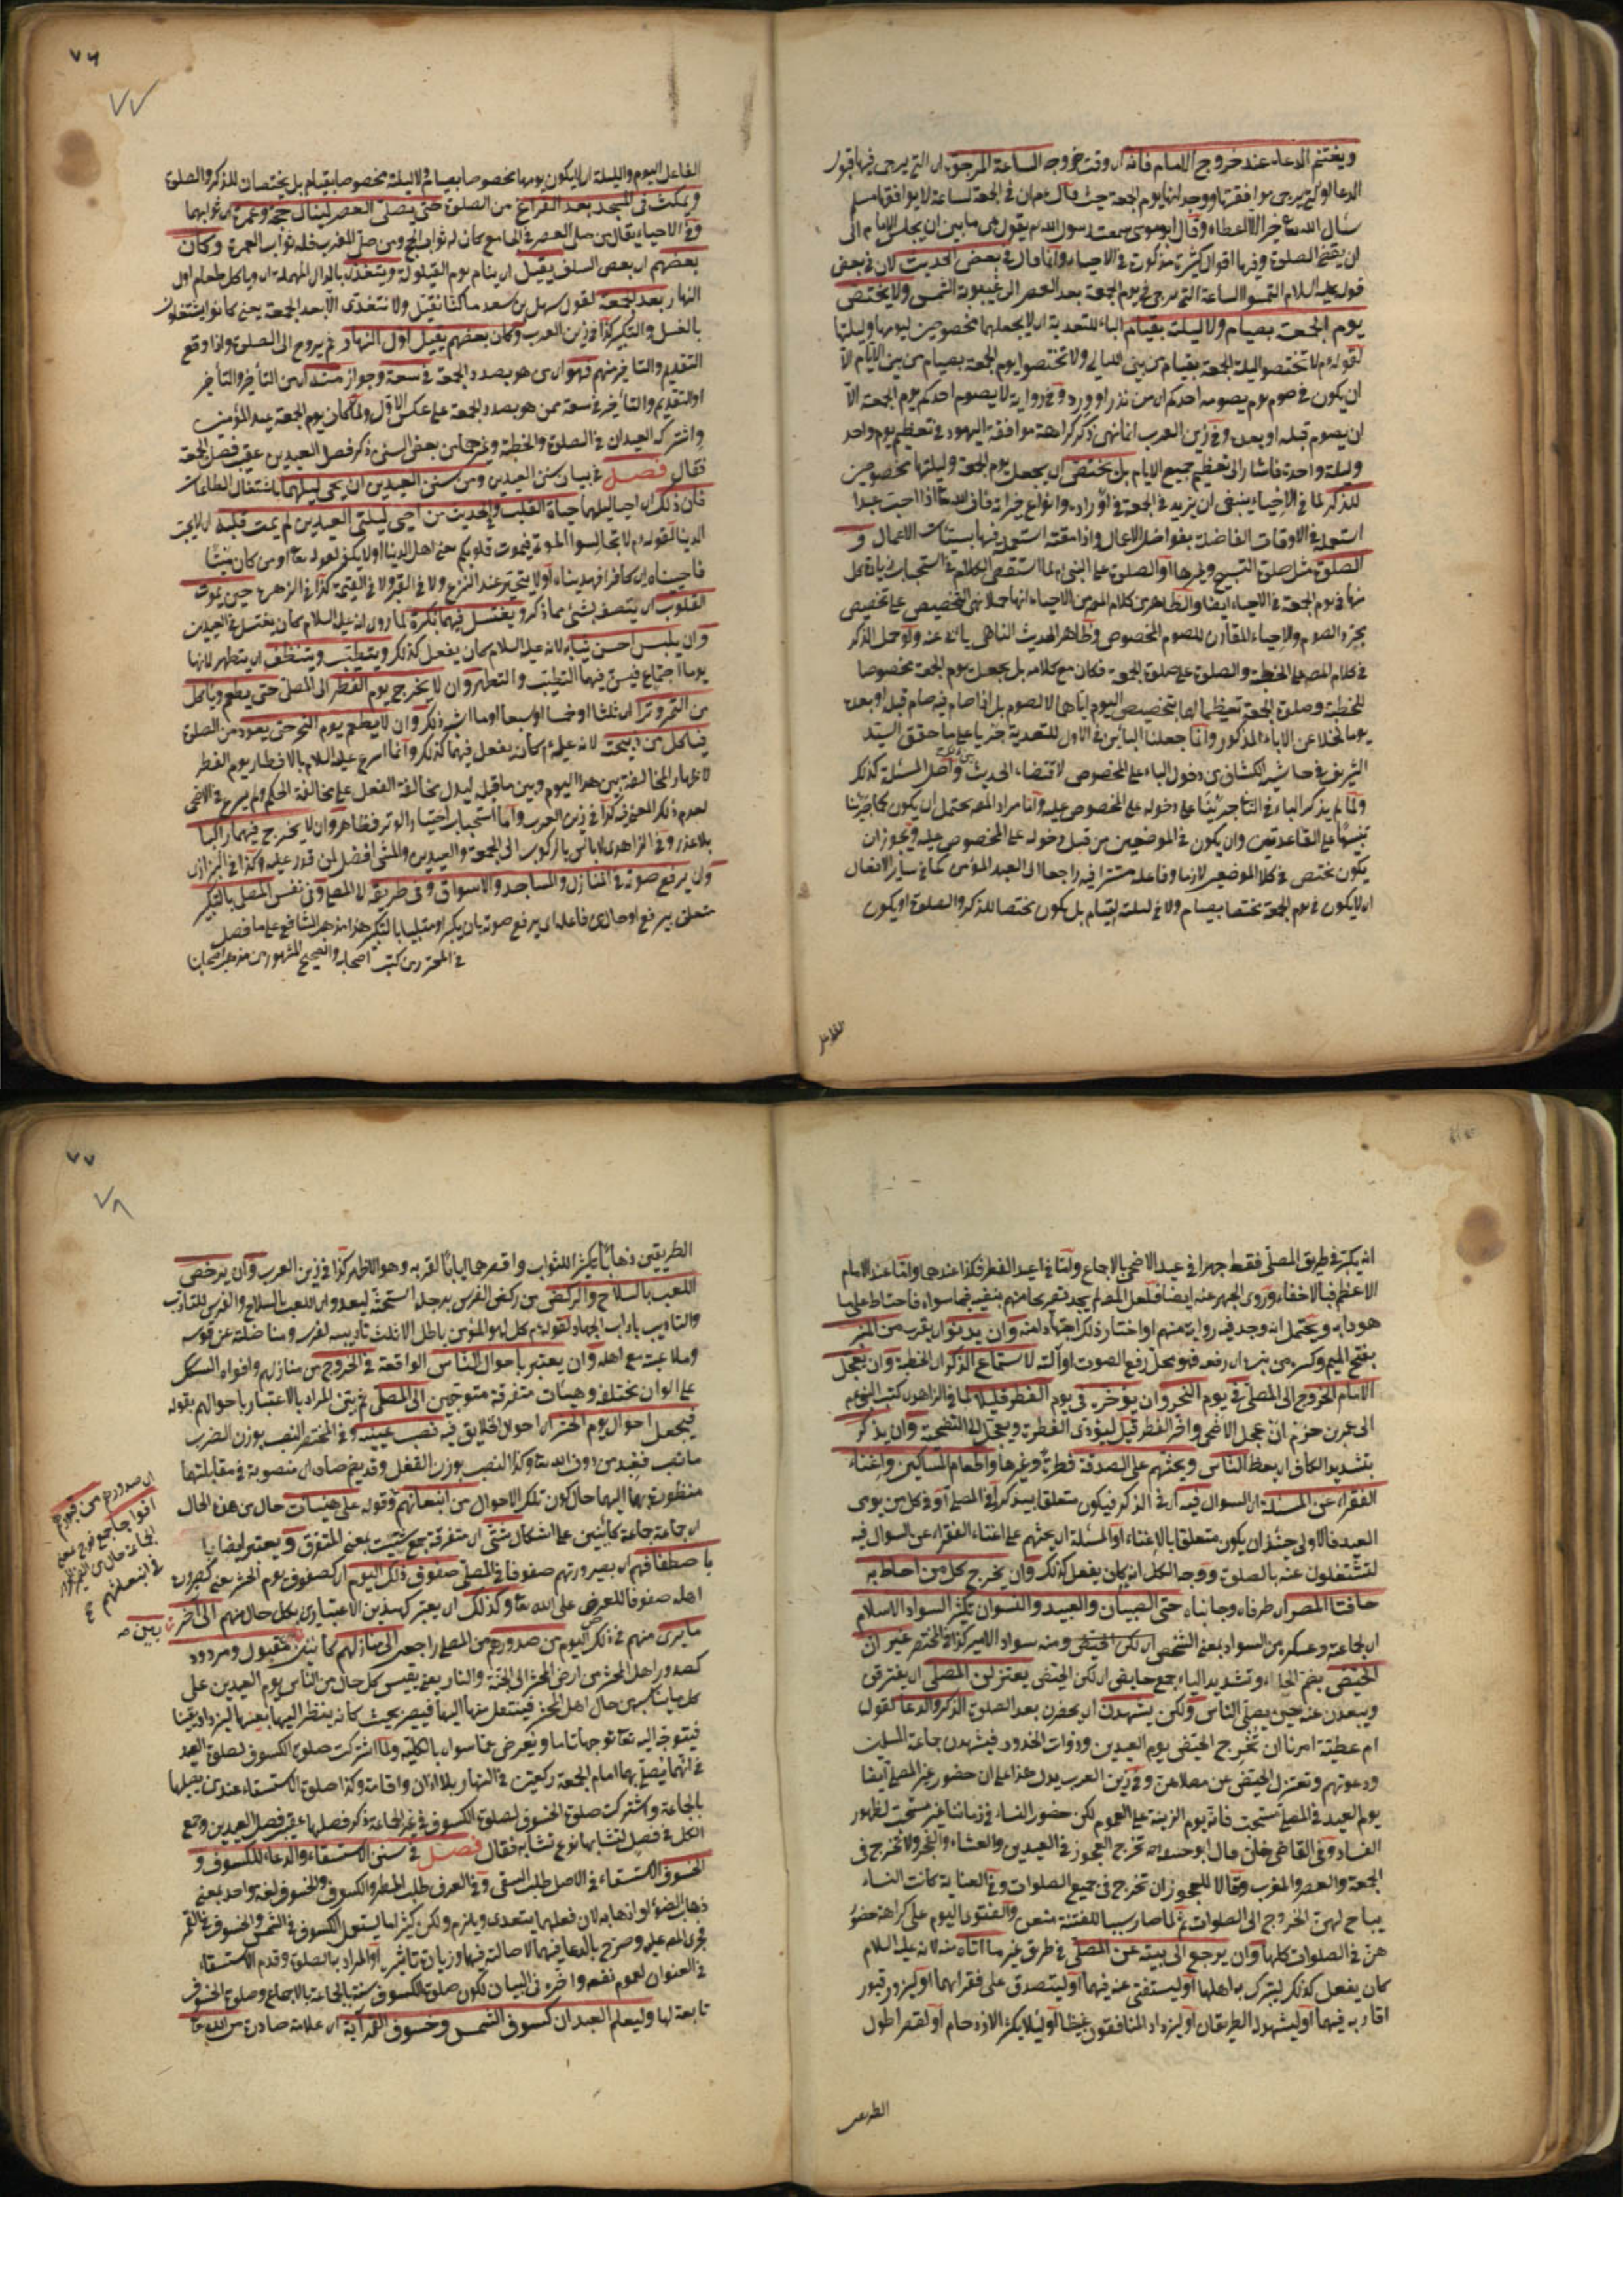 ويغتنم الدعاء عند خروج الامام فانه اى وقت خروجه الساعة المرجوة اى التى يرجى فيها قبول
سأل الله تعا خيرا الا اعطاه وقال ابو موسى سمعت رسول الله عم يقول هى ما بين ان يجلس الامام الى
ان يقضى الصلوة وفيها اقوال كثيرة مذكورة فى الاحياء وانما قال فى بعض الحديث لان فى بعض
قوله عليه السلام التمسوا الساعة التى ترجى فى يوم الجمعة بعد العصر الى غيبوبة الشمس ولا يختص
يوم الجمعة بصيام ولا ليلته بقيام الباء للتعدية اى لا يجعلهما مخصوصين ليومها وليلتها
لقوله عم لا تختصوا ليلة الجمعة بقيام من بين الليالى ولا تختصوا يوم الجمعة بصيام من بين الايام الا
ان يكون فى صوم يوم يصومه احدكم اى من نذر او ورد وفى رواية لا يصوم احدكم يوم الجمعة الا
ان يصوم قبله او بعده وفى زين العرب انما نهى ذكر كراهة موافقة اليهود فى تعظيم يوم واحد
وليلة واحدة فاشار الى تعظيم جميع الايام بل يختص اى يجعل يوم الجمعة وليلتها مخصوصين
للذكر لما فى الاحياء ينبغى ان يزيد فى الجمعة فى اوراده وانواع خيراته فان الله تعا اذا احب عبدا
استعمله فى الاوقات الفاضلة بفواضل الاعمال واذا مقته استعمله فيها بسيئات الاعمال و
الصلوة مثل صلوة التسبيح وغيرها او الصلوة على النبى
بمجرد الصوم والاحياء المقارن للصوم المخصوص وظاهر الحديث الناهى يأبى عنه ولو حمل الذكر
فى كلام المص على الخطبة والصلوة على صلوة الجمعة فكان مع كلامه بل يجعل يوم الجمعة مخصوصا
للخطبة وصلوة الجمعة تعظيما لها بتخصيص اليوم اياهما لا لصوم بل اذا صام فيه صام قبله او بعده
يوما لخلا عن الاباء المذكور وانما جعلنا البائين فى الاول للتعدية جريا على ما حقق السيد
الشريف فى حاشية الكشاف من دخول الباء على المخصوص لاقتضاء الحديث واصل المسئلة كذلك
ولما لم يذكر الباء فى الثانى جرينا على دخوله على المخصوص عليه وانما مراد المص يحتمل ان يكون كما جرينا
تنبيها على القاعدتين وان يكون فى الموضعين من قبل دخوله على المخصوص عليه ويجوز ان
يكون يختص فى كلا الموضعين لازما وفاعله مستترا فيه راجعا الى العبد المؤمن كما فى سائر الافعال
اى لا يكون فى يوم الجمعة مختصا بصيام ولا فى ليلته لقيام بل يكون مختصا للذكر والصلوة او يكون
الفاعل
٧٦
٧٧
الفاعل اليوم والليلة اى لا يكون يومها مخصوصا بصيام ولا ليلته مخصوصا بقيام بل يختصان للذكر والصلوة
ويمكث فى المسجد بعد الفراغ من الصلوة حتى يصلى العصر لينال حجة وعمرة اى ثوابهما
وفى الاحياء يقال من صلى العصر فى الجامع كان له ثواب الحج ومن صلى المغرب فله ثواب العمرة وكان
بعضهم اى بعض السلف يقيل اى ينام يوم القيلولة ويتغدى بالدال المهملة اى وياكل طعام اول
النهار بعد الجمعة لقول سهل بن سعد ما كنا نقيل ولا نتغدى الا بعد الجمعة يعنى كانوا يشتغلون
بالغسل والتبكير كذا فى زين العرب وكان بعضهم يقيل اول النهار ثم يروح الى الصلوة واذا وقع
التقديم والتاخير منهم فهو اى من هو بصدد الجمعة فى سعة وجواز منه اى من التأخير والتأخير
او التقديم والتأخير فى سعة ممن هو بصدد الجمعة على عكس الاول ولما كان يوم الجمعة عيد المؤمنين
واشترك العيدان فى الصلوة والخطبة وغيرهما من بعض السنن ذكر فصل العيدين عقيب فصل الجمعة
فقال فصل فى بيان سنن العيدين ومن سنن العيدين ان يحيى ليلهما باشتغال الطاعات
فان ذلك اى احياء ليلهما حياة القلب وفى الحديث من احيى ليلتى العيدين لم يمت قلبه اى لا يحب
الدنيا لقوله عم لا تجالسوا الموتى فتموت قلوبكم يعنى اهل الدنيا او لا يكفر لقوله تعا اومن كان ميتا
فاحييناه اى كافرا فهديناه او لا يتحير عند النزع ولا فى القبر ولا فى القيمة كذا فى الزهرة حين يموت
القلوب اى يتصف بشئ مما ذكر ويغتسل فيهما بكرة لما روى انه عليه السلام كان يغتسل فى العيدين
وان يلبس احسن ثيابه لانه عليه السلام كان يفعل كذلك ويتطيب ويتنظف اى يتطهر لانها
يوما اجتماع فيسن فيهما التطيب والتطهر وان لا يخرج يوم الفطر الى المصلى حتى يطعم وياكل
من التمر وترا اى ثلثا او خمسا او سبعا او ما اشبه ذلك وان لا يطعم يوم النحر حتى يعود من الصلوة
فياكل من ذبيحته لانه عليه عم كان يفعل فيهما كذلك وانما اسرع عليه السلام بالافطار يوم الفطر
لاظهار المخالفة بين هذا اليوم وبين ما قبله ليدل مخالفة الفعل على مخالفة الحكم ولم يسرع فى الاضحى
لعدم ذلك المعنى فيه كذا فى زين العرب واما استحباب اختيار الوتر فظاهر وان لا يخرج فيهما راكبا
بلا عذر وفى الزاهدى لا بأس بالركوب الى الجمعة والعيدين والمشى افضل لمن قدر عليه وكذا فى البزازى
وان يرفع صوته فى المنازل والمساجد والاسواق وفى طريق المصلى وفى نفس المصلى بالتكبير
متعلق بيرفع او حال من فاعله اى يرفع صوته بان يكبر او متلبسا بالتكبير هذا مذهب الشافعى على ما فصل
فى المحرر من كتب اصحابه والصحيح المشهور من مذهب اصحابنا
انه يكبر فى طريق المصلى فقط جهرا فى عيد الاضحى بالاجماع واما فى عيد الفطر فكذا عندهما واما عند الامام
الاعظم فبالاخفاء وروى الجهر عنه ايضا فلعل المص لم يجد تصريحا منهم بنفيه فيما سواه فاحتاط على ما
هو دابه ويحتمل انه وجد فيه رواية منهم او اختار ذلك اجتهادا منه وان يدنو اى يقرب من المنبر
بفتح الميم وكسره من نبر اى رفعه فهو محل رفع الصوت او آلته لاستماع الذكر اى الخطبة وان يعجل
الامام الخروج الى المصلى فى يوم النحر وان يؤخره فى يوم الفطر قليلا لما فى الزاهدى كتب النبى عم
الى عمرو بن حزم ان عجل الاضحى واخر الفطر قيل ليؤدى الفطرة ويعجل الى التضحية وان يذكر
بتشديد الكاف اى يعظ الناس ويحثهم على الصدقة فطرة وغيرها واطعام المساكين واغناء
الفقراء عن المسئلة اى السوال فيه اى فى الذكر فيكون متعلقا بيذكر او فى المصلى او فى كل من يومى
العيد فالاولى حينئذ ان يكون متعلقا بالاغناء او المسئلة اى يحثهم على اغناء الفقراء عن السوال فيه
لئلا يشتغلون عنه بالصلوة ووجه الكل انه كان يفعل كذلك وان يخرج كل من احاط به
حافتا المصر اى طرفاه وجانباه حتى الصبيان والعبيد والنسوان يكثر السواد الاسلام
اى الجماعة وعسكره من السواد بمعنى الشخص ومنه سواد الامير كذا فى المختصر غير ان
الحيض بضم الحاء وتشديد الياء جمع حايض اى لكن الحيض يعتزلن المصلى اى يفترقن
ويبعدن عنه حين يصلى الناس ولكن يشهدن اى يحضرن بعد الصلوة الذكر والدعاء لقول
ام عطية امرنا ان نخرج الحيض يوم العيدين وذوات الخدور فيشهدن جماعة المسلمين
ودعوتهم وتعتزل الحيض عن مصلاهن وفى زين العرب يدل هذا على ان حضور غير المصلى ايضا
يوم العيد فى المصلى مستحب فانه يوم الزينة على العموم لكن حضور النساء فى زماننا غير مستحب لظهور
الفساد وفى القاضى خان قال ابو حنيفة تخرج العجوز فى العيدين والعشاء والفجر ولا تخرج فى
الجمعة والعصر والمغرب وقالا للعجوز ان تخرج فى جميع الصلوات وفى العناية كانت النساء
يباح لهن الخروج الى الصلوات ثم لما صار سببا للفتنة منعن والفتوى اليوم على كراهة حضور
هن فى الصلوات كلها وان يرجع الى بيته عن المصلى فى طريق غير ما اتاه منه لانه عليه السلام
كان يفعل كذلك ليتبرك به اهلها او ليستفتى عنه فيهما او ليتصدق على فقرائهما او ليزور قبور
اقاربه فيهما او ليشهد له الطريقان او ليزداد المنافقون غيظا او لئلا يكثر الازدحام او لقصد اطول
الطريقين
٧٧
٧٨
الطريقين ذهابا ليكثر الثواب واقصرهما ايابا لقربه وهو الاظهر كذا فى زين العرب وان يرخص
اللعب بالسلاح والركض من ركض الفرس برجله استحثه ليعدو اى اللعب بالسلاح والفرس للتأدب
والتاديب باداب الجهاد لقوله عم كل لهو المؤمن باطل الا ثلث تاديبه لفرسه ومناضلته عن قوسه
وملاعبته مع اهله وان يعتبر باحوال الناس الواقعة فى الخروج من منازلهم وافواه السكك
على الوان مختلفة وهيئات متفرقة متوجهين الى المصلى ثم بين المراد بالاعتبار باحوالهم بقوله
فيجعل احوال يوم الحشر اى احوال الخلايق فيه نصب عينيه وفى المختصر النصب بوزن الضرب
ما نصب فعبد من دون الله تعا وكذا النصب بوزن القفل وقد يضم صاده اى منصوبة فى مقابلتها
منظورة بهما اليهما حال كون تلك الاحوال من انبعاثهم وقوله على هيئات حال من هذه الحال
اى جماعة جماعة كائنين على اشكال شتى اى متفرقة جمع شتيت بمعنى المتفرق ويعتبر ايضا
باصطفافهم اى بصيرورتهم صفوفا فى المصلى صفوف ذلك اليوم اى كصفوف يوم الحشر
اهله صفوفا للعرض على الله تعا وكذلك اى يعتبر كهذين الاعتبارين بكل حال منهم الى آخر
ما يرى منهم فى ذلك اليوم من صدورهم من المصلى راجعين الى منازلهم كائنين مقبول ومردود
كصدور اهل المحشر من ارض المحشر الى الجنة والنار يعنى يقيس كل حال من الناس يوم العيدين على
فيتوجه اليه تعا توجها تاما ويعرض عما سواه بالكلية ولما اشتركت صلوة الكسوف لصلوة العيد
فى انهما يصلى بهما امام الجمعة ركعتين فى النهار بلا اذان واقامة وكذا صلوة الاستسقاء عند من يصليها
بالجماعة واشتركت صلوة الخسوف لصلوة الكسوف فى غير الجماعة ذكر فصلها عقيب فصل العيدين وجمع
الكل فى فصل لتشابهها نوع تشابه فقال فصل فى سنن الاستسقاء والدعاء للكسوف و
الخسوف الاستسقاء فى الاصل طلب السقى وفى العرف طلب المطر والكسوف والخسوف لغة واحد بمعنى
ذهاب الضوء او اذهابه لان فعلهما يتعدى ويلزم ولكن كثيرا ما يستعمل الكسوف فى الشمس والخسوف فى القمر
فجرى المص عليه وصرح بالدعاء فيهما لاصالته فيهما وزيادة تاثيره او المراد بالصلوة وقدم الاستسقاء
فى العنوان لعموم نفعه واخره فى البيان لكون صلوة الكسوف سنة بالجماعة بالاجماع وصلوة الخسوف
تابعة لها وليعلم العبد ان كسوف الشمس وخسوف القمر آية اى علامة صادرة من الله تعا
اى صدورهم من قبورهم
افواجا جمع فوج بمعنى
الجماعة حال من
فى انبعاثهم